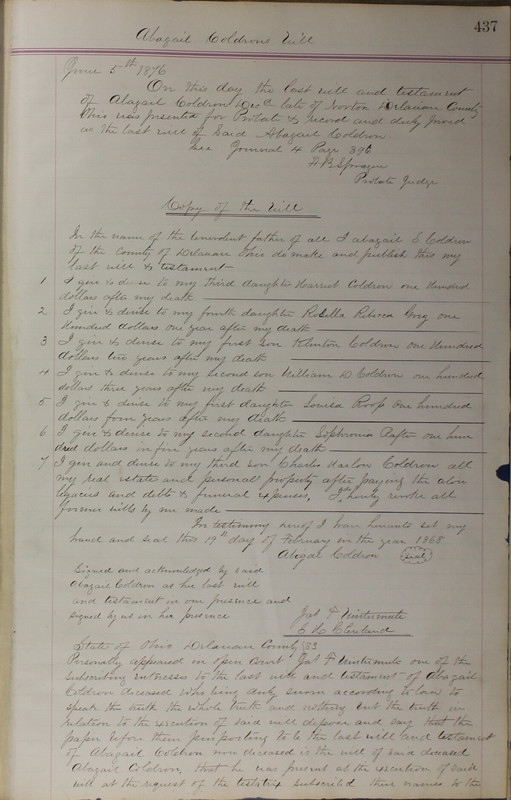 437
Abagail Coldrons Will
June 5th 1876
On this day the last will and testament
of Abagail Coldron Decd late of Norton Delaware County
Ohio was presented for Probate & Record and duly proved
as the last will of said Abagail Coldron
See Journal 4 Page 396
F B Sprague
Probate Judge
Copy of the Will
In the name of the benevolent father of all I Abagail E Coldron
of the County of Delaware Ohio do make and publish this my
last will & testament
1 I give & devise to my third daughter Harriet Coldron one Hundred
dollars after my death
2 I give & devise to my fourth daughter Rosilla Rebecca one
Hundred dollars one year after my death
3 I give & devise to my first son Clinton Coldron one Hundred
dollars two years after my death
4 I give & devise to my second son William D Coldron one hundred
dollars three years after my death
5 I give & devise to my first daughter Louisa Roof one hundred
dollars four years after my death
6 I give & devise to my second daughter Sophronia one hun
dred dollars in five years after my death
7 I give and devise to my third son Charles Harlow Coldron all
my real estate and personal property after paying the above
legacies and debts & funeral expenses, I hereby revoke all
former wills by me made
In testimony hereof I have hereunto set my
hand and seal this 19th day of February in the year 1868
Abigal Coldron seal
Signed and acknowledged by said
Abagail Coldron as her last will
and testament in our presence and
signed by us in her presence
Jas F
E H Cleveland
State of Ohio Delaware County SS
Personally appeared in open Court Jas F one of the
subscribing witnesses to the last will and testament of Abagail
Coldron deceased who being duly sworn according to law to
speak the truth the whole truth and nothing but the truth in
relation to the execution of said will depose and say that the
paper before them purporting to be the last will and testament
of Abagail Coldron now deceased is the will of said deceased
Abagail Coldron, that he was present at the execution of said
will at the request of the testatrix subscribed their names to the